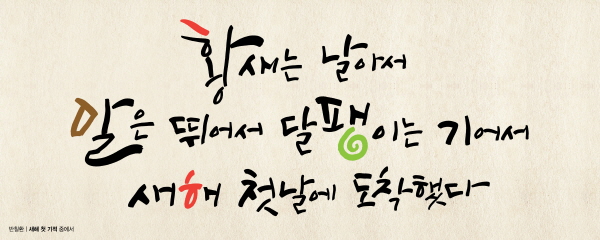 황새는 날아서
말은 뛰어서 달팽이는 기어서
새해 첫날에 도착했다
반칠환 | 새해 첫 기적 중에서